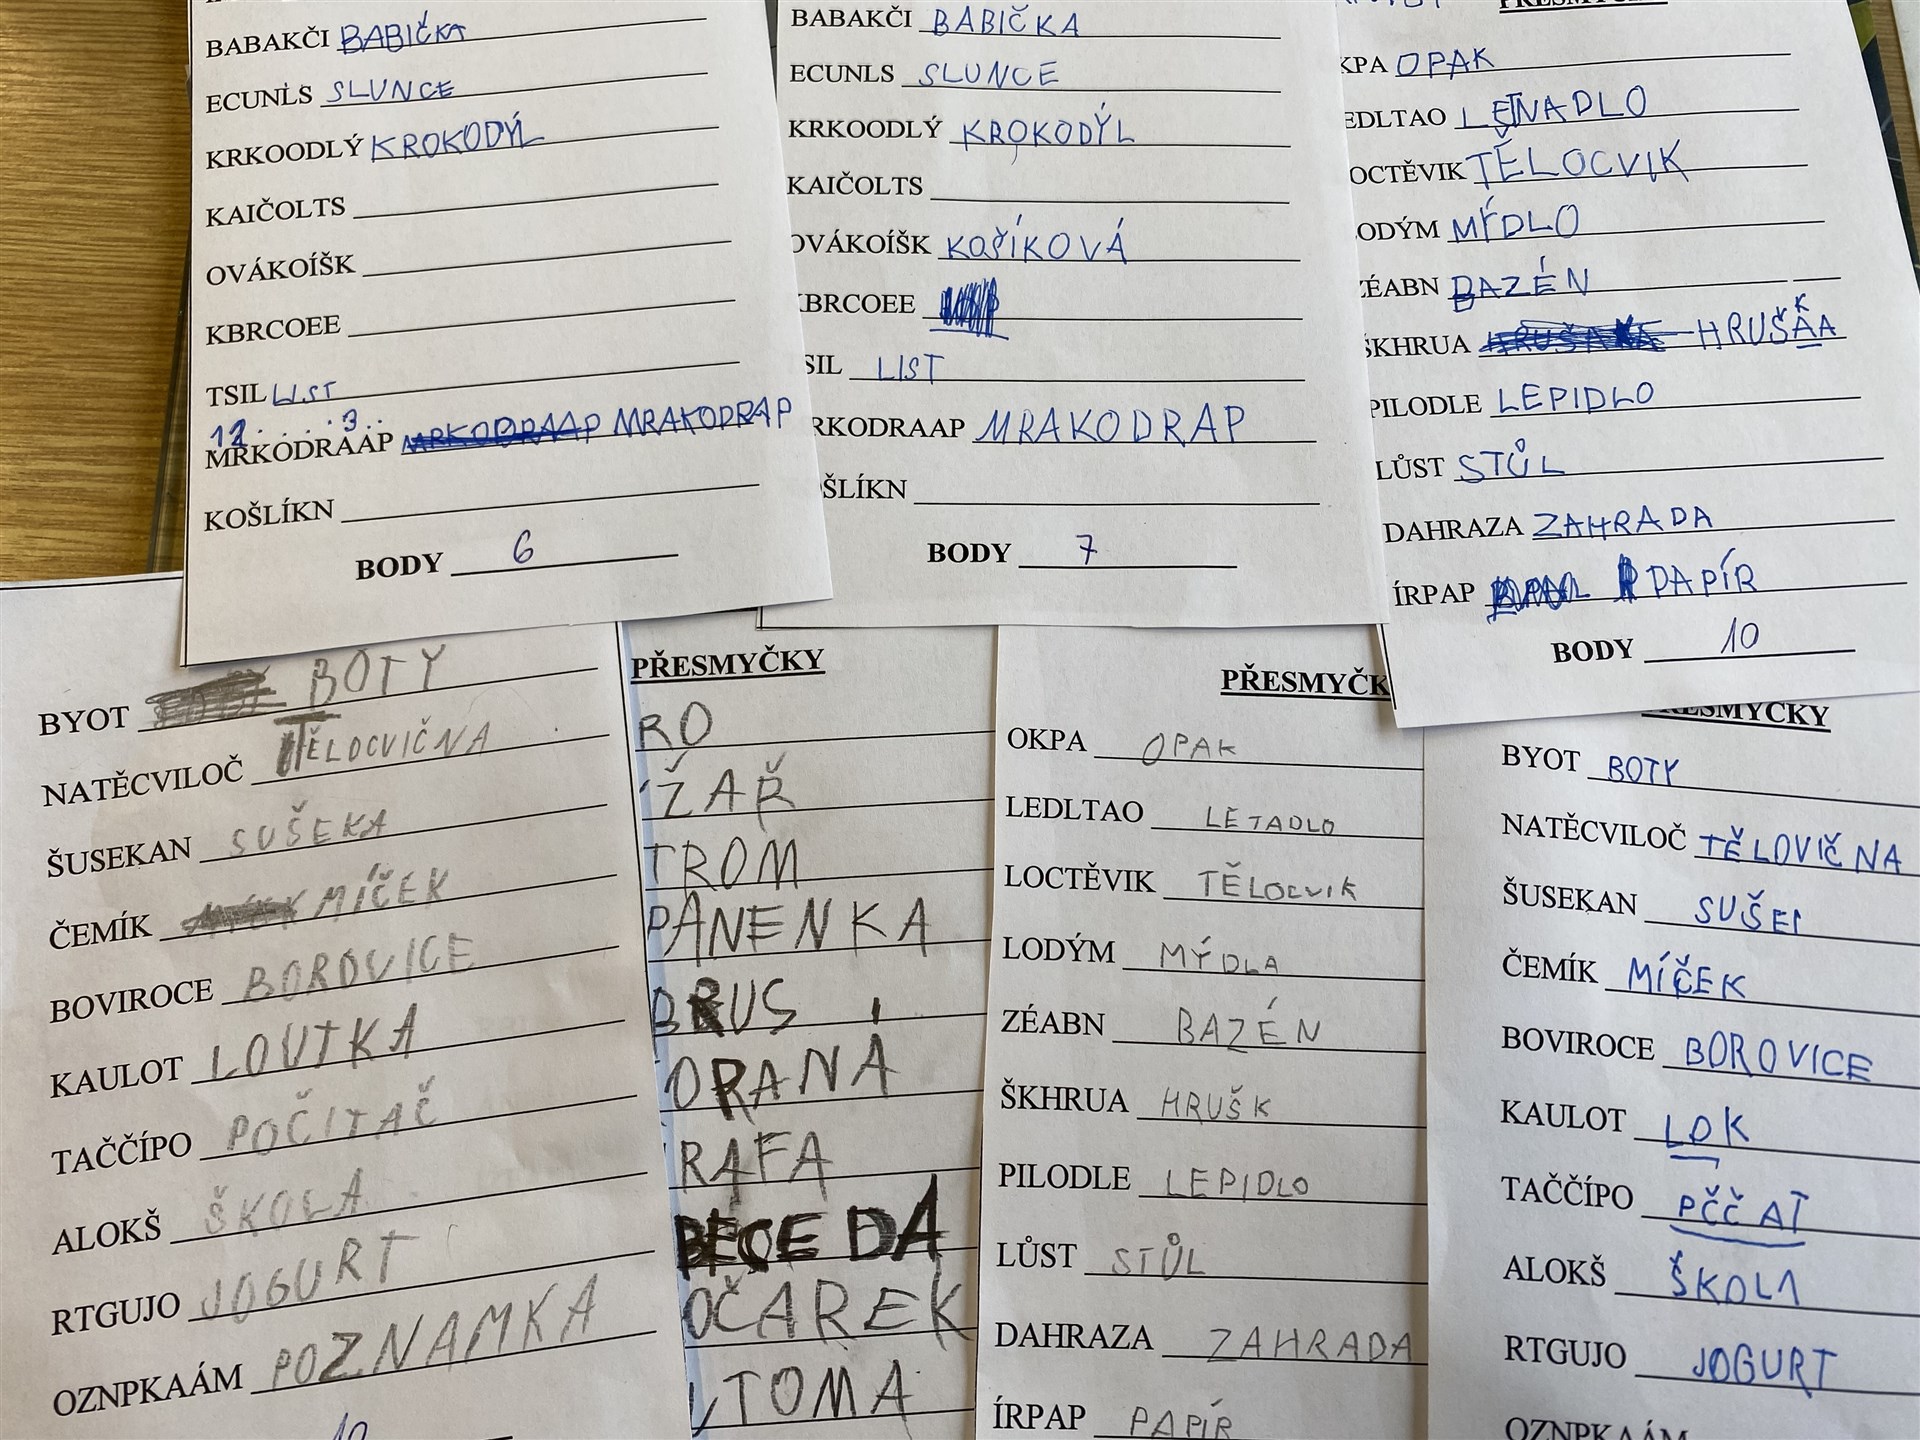 BABAKČI BABIČKA
ECUNLS SLUNCE
KRKOODLÝ KROKODÝL
KAIČOLTS
OVÁKOÍŠK
KBRCOEE
TSIL LIST
12 . . . . . 3 . .
MRKODRAAP MRKODRAAP MRAKODRAP
KOŠLÍKN
BODY 6
BABAKČI BABIČKA
ECUNLS SLUNCE
KRKOODLÝ KROKODÝL
KAIČOLTS
OVÁKOÍŠK KOŠÍKOVÁ
KBRCOEE
SIL LIST
RKODRAAP MRAKODRAP
OŠLÍKN
BODY 7
KPA OPAK
EDLTAO LETNADLO
OCTĚVIK TĚLOCVIK
ODÝM MÝDLO
ZÉABN BAZÉN
ŠKHRUA HRUŠKA
PILODLE LEPIDLO
LŮST STŮL
DAHRAZA ZAHRADA
ÍRPAP PAPÍR
BODY 10
BYOT BOTY
NATĚCVILOČ TĚLOCVIČNA
ŠUSEKAN SUŠEKA
ČEMÍK MÍČEK
BOVIROCE BOROVICE
KAULOT LOUTKA
TAČČÍPO POČITAČ
ALOKŠ ŠKOLA
RTGUJO JOGURT
OZNPKAÁM POZNAMKA
10
PŘESMYČKY
RO
ŽAŘ
TROM
PANENKA
BRUS
OPANÁ
RAFA
BECEDA
OČAREK
TOMA
PŘESMYČK
OKPA OPAK
LEDLTAO LETADLO
LOCTĚVIK TĚLOCVIK
LODÝM MÝDLA
ZÉABN BAZÉN
ŠKHRUA HRUŠK
PILODLE LEPIDLO
LŮST STŮL
DAHRAZA ZAHRADA
ÍRPAP PAPÍR
PŘESMYČKY
BYOT BOTY
NATĚCVILOČ TĚLOVIČNA
ŠUSEKAN SUŠEI
ČEMÍK MÍČEK
BOVIROCE BOROVICE
KAULOT LOK
TAČČÍPO PČČAT
ALOKŠ ŠKOLA
RTGUJO JOGURT
OZNPKAÁM